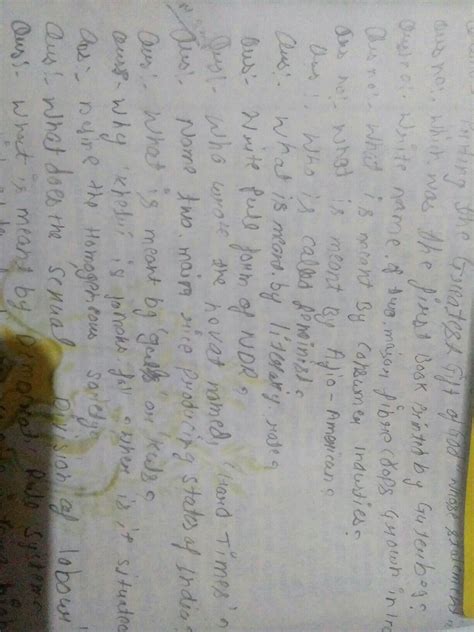 Printing Greatest gift of god
Ans no:- Which was the first Book printed by Gutenberg?
Ans no:- Write name of two main fibre crops grown in
Ans no:- What is meant By Consumer Industries?
Ans no:- What is meant By Afro-American?
Ans:- Who is called feminist?
Ans:- What is meant by literacy rate?
Ans:- Write full form of NDR?
Ans:- Who wrote the novel named, 'Hard Times'?
Ans:- Name two main rice producing states of India?
Ans:- What is meant by on heels?
Ans:- Why is famous for where is it situated
Ans:- Define the Homogeneous society?
Ans:- What does the sexual Division of labour
Ans:- What is meant by Rule system